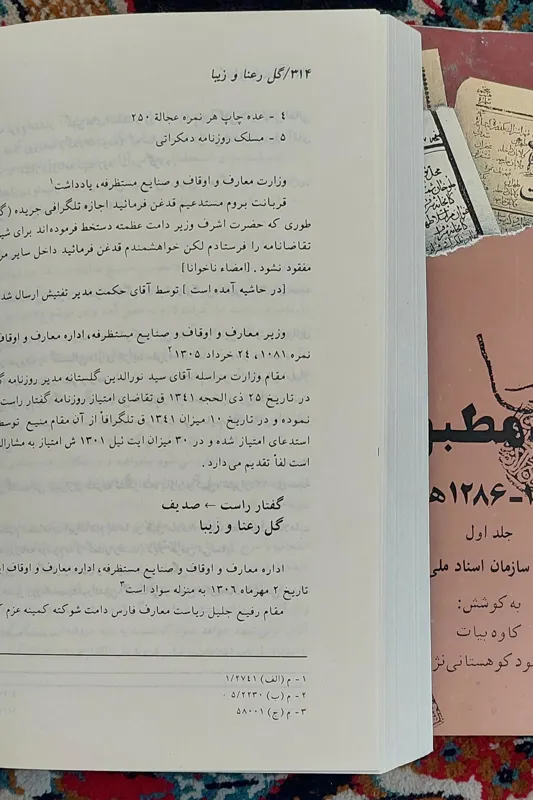 ۳۱۴/گل رعنا و زیبا
۴ - عده چاپ هر نمره عجالة ۲۵۰
۵ - مسلک روزنامه دمکراتی
وزارت معارف و اوقاف و صنایع مستظرفه، یادداشت۱
قربانت بروم مستدعیم قدغن فرمائید اجازه تلگرافی جریده (گ
طوری که حضرت اشرف وزیر دامت عظمته دستخط فرموده‌اند برای شی
تقاضانامه را فرستادم لکن خواهشمندم قدغن فرمائید داخل سایر مر
مفقود نشود. [امضاء ناخوانا]
[در حاشیه آمده است] توسط آقای حکمت مدیر تفتیش ارسال شد
وزیر معارف و اوقاف و صنایع مستظرفه، اداره معارف و اوقاف
نمره ۱۰۸۱، ۲۴ خرداد ۱۳۰۵۲
مقام وزارت مراسله آقای سید نورالدین گلستانه مدیر روزنامه گ
در تاریخ ۲۵ ذی الحجه ۱۳۴۱ ق تقاضای امتیاز روزنامه گفتار راست
نموده و در تاریخ ۱۰ میزان ۱۳۴۱ ق تلگرافاً از آن مقام منیع توسط
استدعای امتیاز شده و در ۳۰ میزان ایت ئیل ۱۳۰۱ ش امتیاز به مشارال
است لفاً تقدیم می‌دارد.
گفتار راست ← صدیف
گل رعنا و زیبا
اداره معارف و اوقاف و صنایع مستظرفه، اداره معارف و اوقاف ای
تاریخ ۲ مهرماه ۱۳۰۶ به منزله سواد است۳
مقام رفیع جلیل ریاست معارف فارس دامت شوکته کمینه عزم ک
۱ - م (الف) ۱/۲۷۴۱
۲ - م (ب) ۵/۲۲۳۰ ۰
۳ - م (ج) ۵۸۰۰۱
مطبو
۱۲۸۶ ه
جلد اول
سازمان اسناد ملی
به کوشش:
کاوه بیات
ود کوهستانی نژ